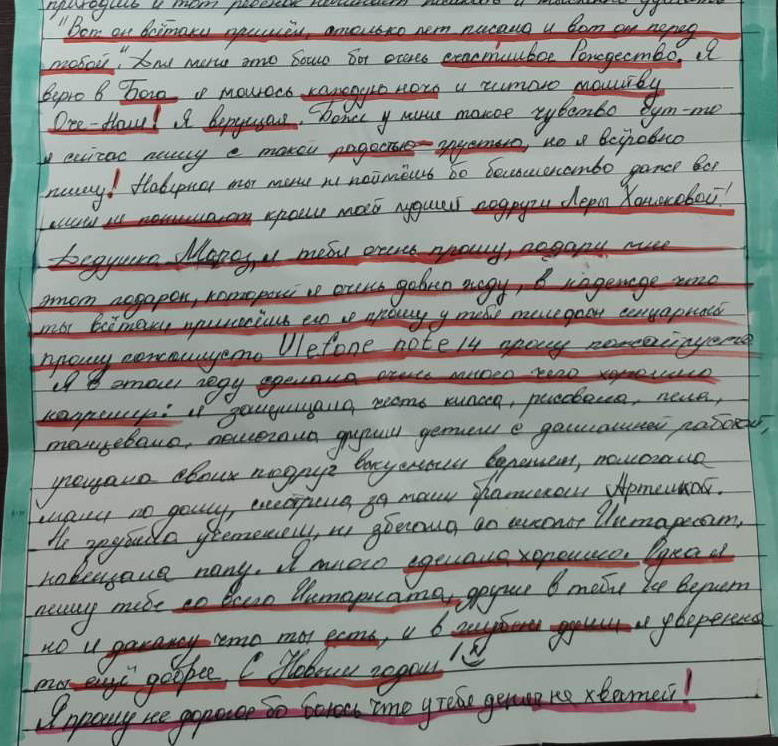 приходишь и тот ребёнок начинает
"Вот он всётаки пришёл, столько лет писала и вот он перед
тобой". Для меня это было бы очень счастливое Рождество. Я
верю в Бога я молюсь каждую ночь и читаю молитву
Оче-Наш! Я верущая. Боже у меня такое чувство бут-то
я сейчас пишу с такой радостью-грустью, но я всёровно
пишу! Наверное ты меня не поймёшь бо большенство даже все
меня не понимают кроме моей лудшей подруги Леры Хомяковой!
Дедушка Мороз, я тебя очень прошу, подари мне
этот подарок, который я очень давно жду, в надежде что
ты всётаки принесёшь его я прошу у тебя телефон сенцарный
прошу пожалуйсто Ulefone note 14 прошу пожайлуста
Я в этом году сделала очень много чего хорошего
например: я защищала честь класса, рисовала, пела,
танцевала, помогала другим детям с домашней работой,
угощала своих подруг вкусным варением, помогала
маме по дому, смотрела за моим братиком Артёмкой.
Не грубила учетелям, не збегала со школы Интарнат,
навещала папу. Я много сделала хорошего. Одна я
пишу тебе со всего Интарната, другие в тебя не верят
но я дакажу что ты есть, и в глубене души я уверенна
ты ещё добрее С Новым годом!
Я прошу не дорогое бо боюсь что у тебя денег не хватей!